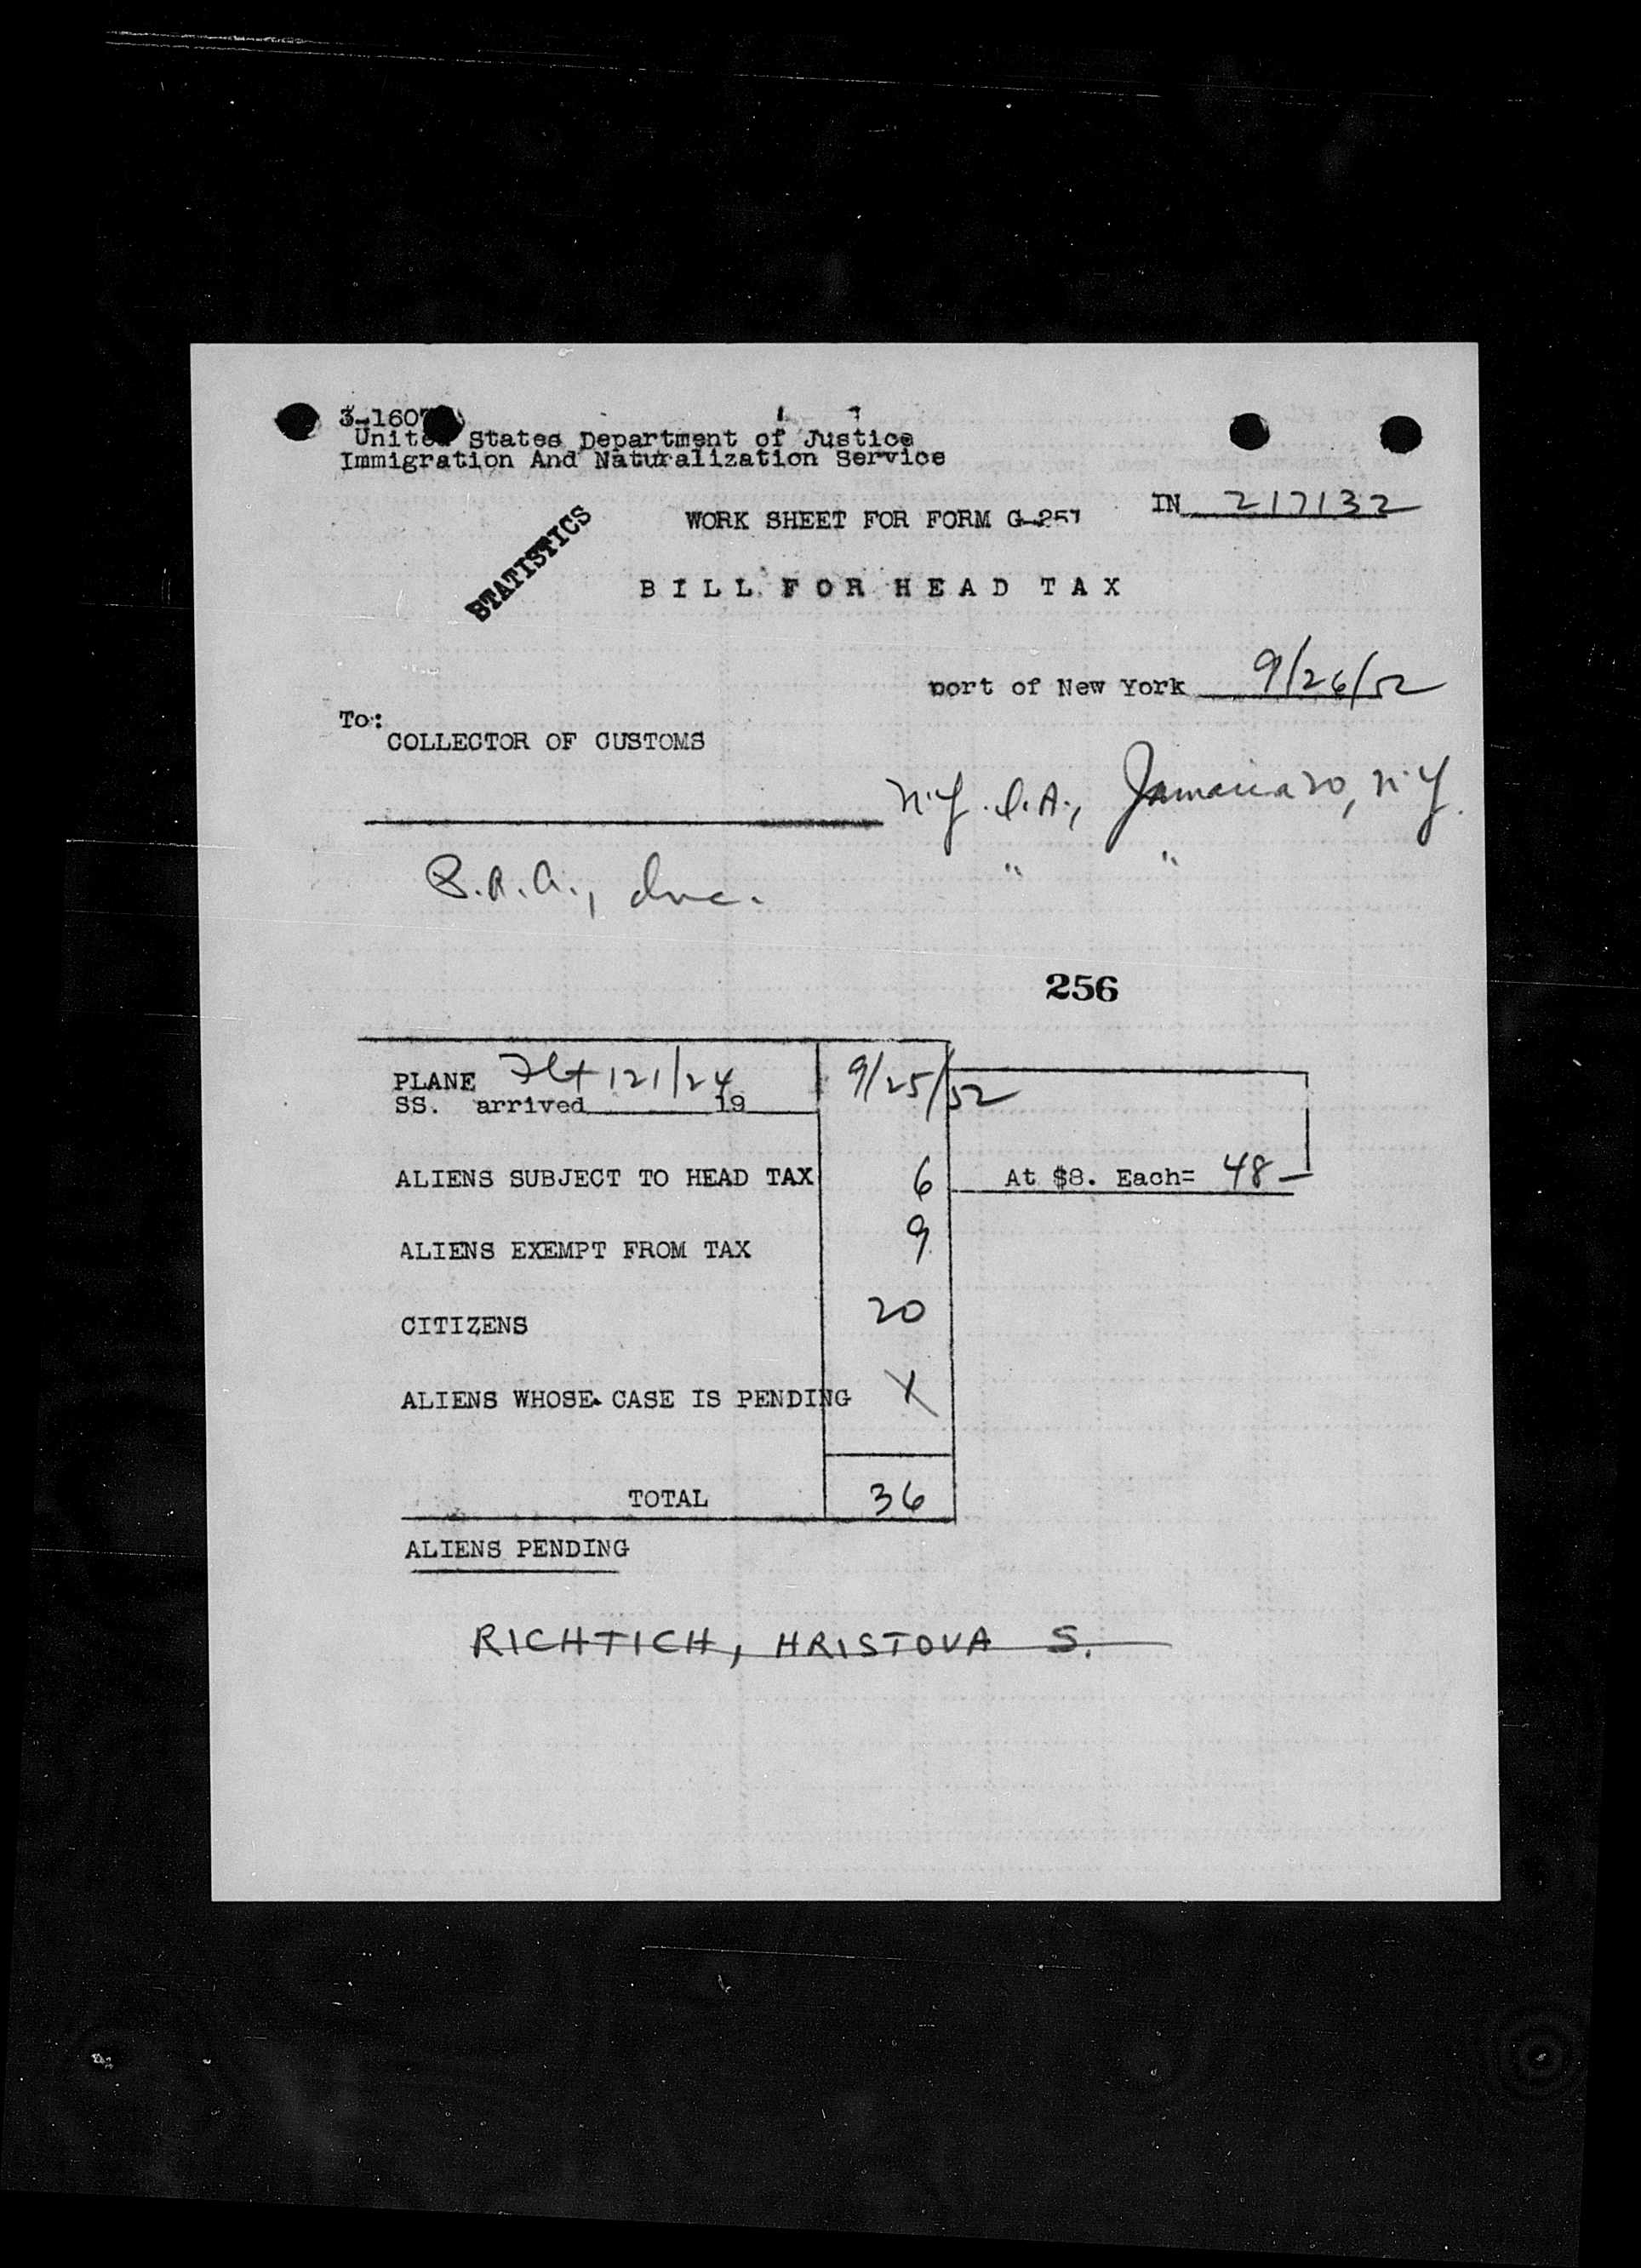 3-1607
United States Department of Justice
Immigration And Naturalization Service
IN 217132
WORK SHEET FOR FORM G-257
STATISTICS
BILL FOR HEAD TAX
port of New York 9/26/52
To:
COLLECTOR OF CUSTOMS
N.Y. I.A., Jamaica 30, N.Y.
" "
P.A.A., Inc.
256
PLANE Flt 121/24 9/25/52
SS. arrived 19
ALIENS SUBJECT TO HEAD TAX 6 At $8. Each= 48–
ALIENS EXEMPT FROM TAX 9
CITIZENS 20
ALIENS WHOSE CASE IS PENDING X
TOTAL 36
ALIENS PENDING
RICHTICH, HRISTOVA S.